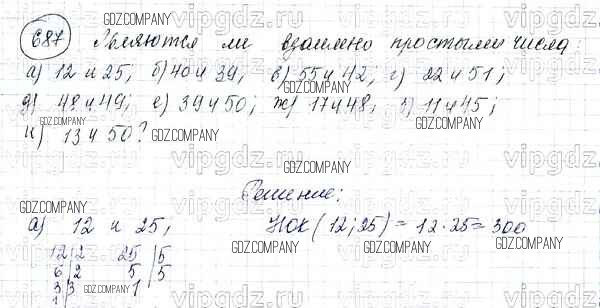 687 Являются ли взаимно простыми числа:
а) 12 и 25; б) 40 и 39; в) 55 и 42; г) 22 и 51;
д) 48 и 49; е) 39 и 50; ж) 17 и 48; з) 11 и 45;
и) 13 и 50?
Решение:
а) 12 и 25; НОК (12; 25) = 12 · 25 = 300
12 | 2 25 | 5
6 | 2 5 | 5
3 | 3 1
1
GDZ.COMPANY
vipgdz.ru